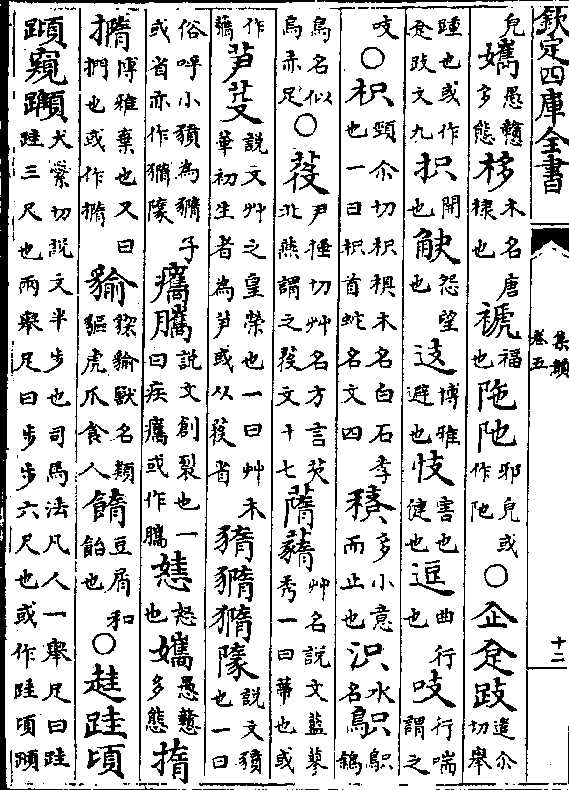 欽定四庫全書 集韻 卷五 十二
皃㜅愚戇多態栘木名唐棣也褫福也陁阤邪皃或作阤○企𠈮跂遣尒切舉
踵也或作𠈮跂文九抧開也觖怨望也䢋博雅避也忮害也健也逗曲行也吱行喘謂之
吱○枳頸尒切枳椇木名白石李也一曰枳首蛇名文四積多小意而止也沢水名䳅䳅鵁
鳥名似烏赤足○䓈尹捶切艸名方言芡北燕謂之䓈文十七蓨䕹艸名說文藍蓼秀一曰華也或
作䕹芛𦬇說文艸之葟榮也一曰艸木華初生者為芛或从䓈省說文豶也一曰
俗呼小豶為豶子或省亦作說文創裂也一曰疾㿈或作恚怒也㜅愚戇多態
博雅棄也又曰捫也或作貐猰貐獸名類貙虎爪食人豆屑和飴也○䞨跬頃
窺犬縈切說文半步也司馬法凡人一舉足曰跬跬三尺也兩舉足曰步步六尺也或作跬頃